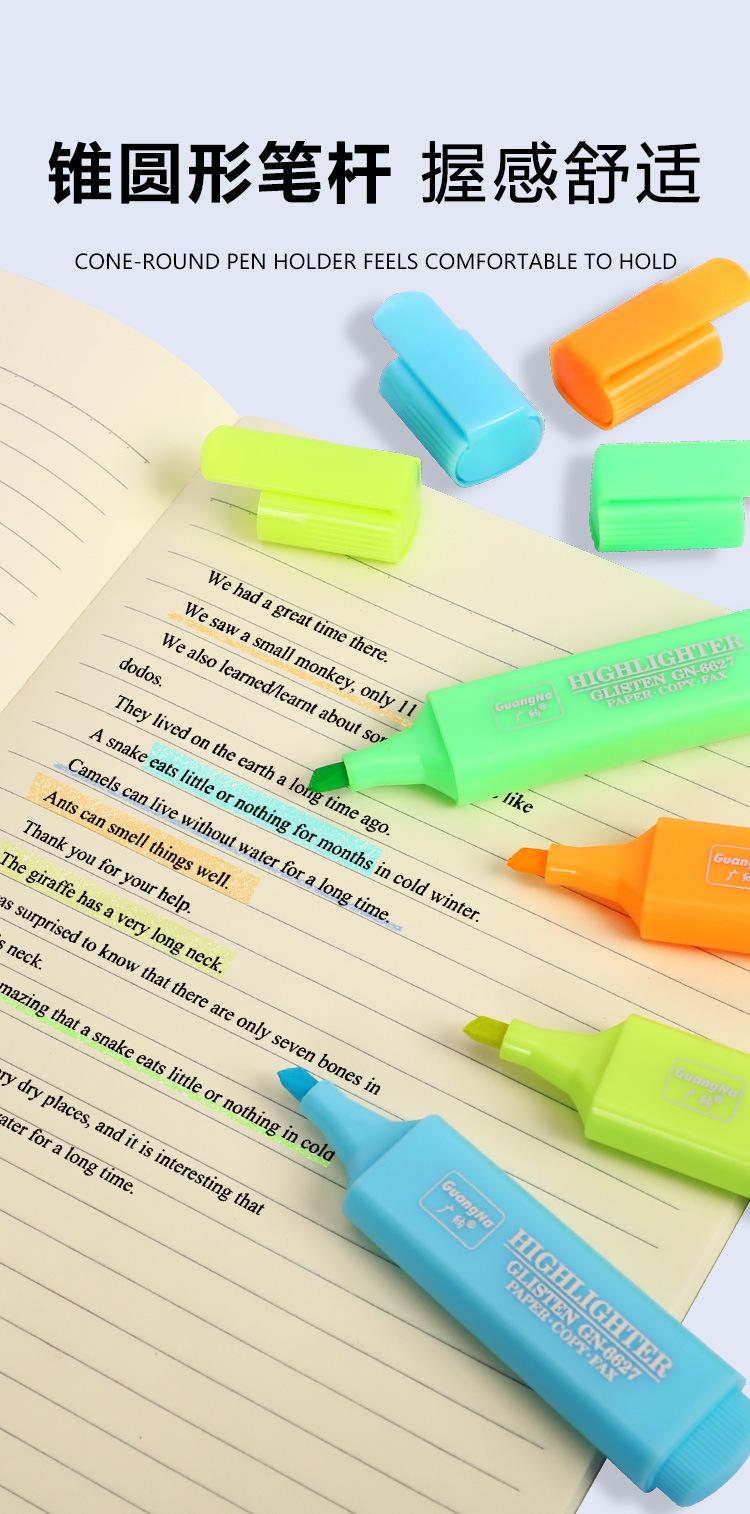 锥圆形笔杆 握感舒适
CONE-ROUND PEN HOLDER FEELS COMFORTABLE TO HOLD
We had a great time there.
We saw a small monkey, only 11
We also learned/learnt about
dodos.
They lived on the earth a long time ago.
like
A snake eats little or nothing for months in cold winter.
Camels can live without water for a long time.
Ants can smell things well.
Thank you for your help.
The giraffe has a very long neck.
surprised to know that there are only seven bones in
neck.
that a snake eats little or nothing in cold
dry places, and it is interesting that
for a long time.
HIGHLIGHTER
GLISTEN GN-6627
PAPER·COPY·FAX
GuangNa
广纳
GuangNa
广纳®
HIGHLIGHTER
GLISTEN GN-6627
PAPER·COPY·FAX